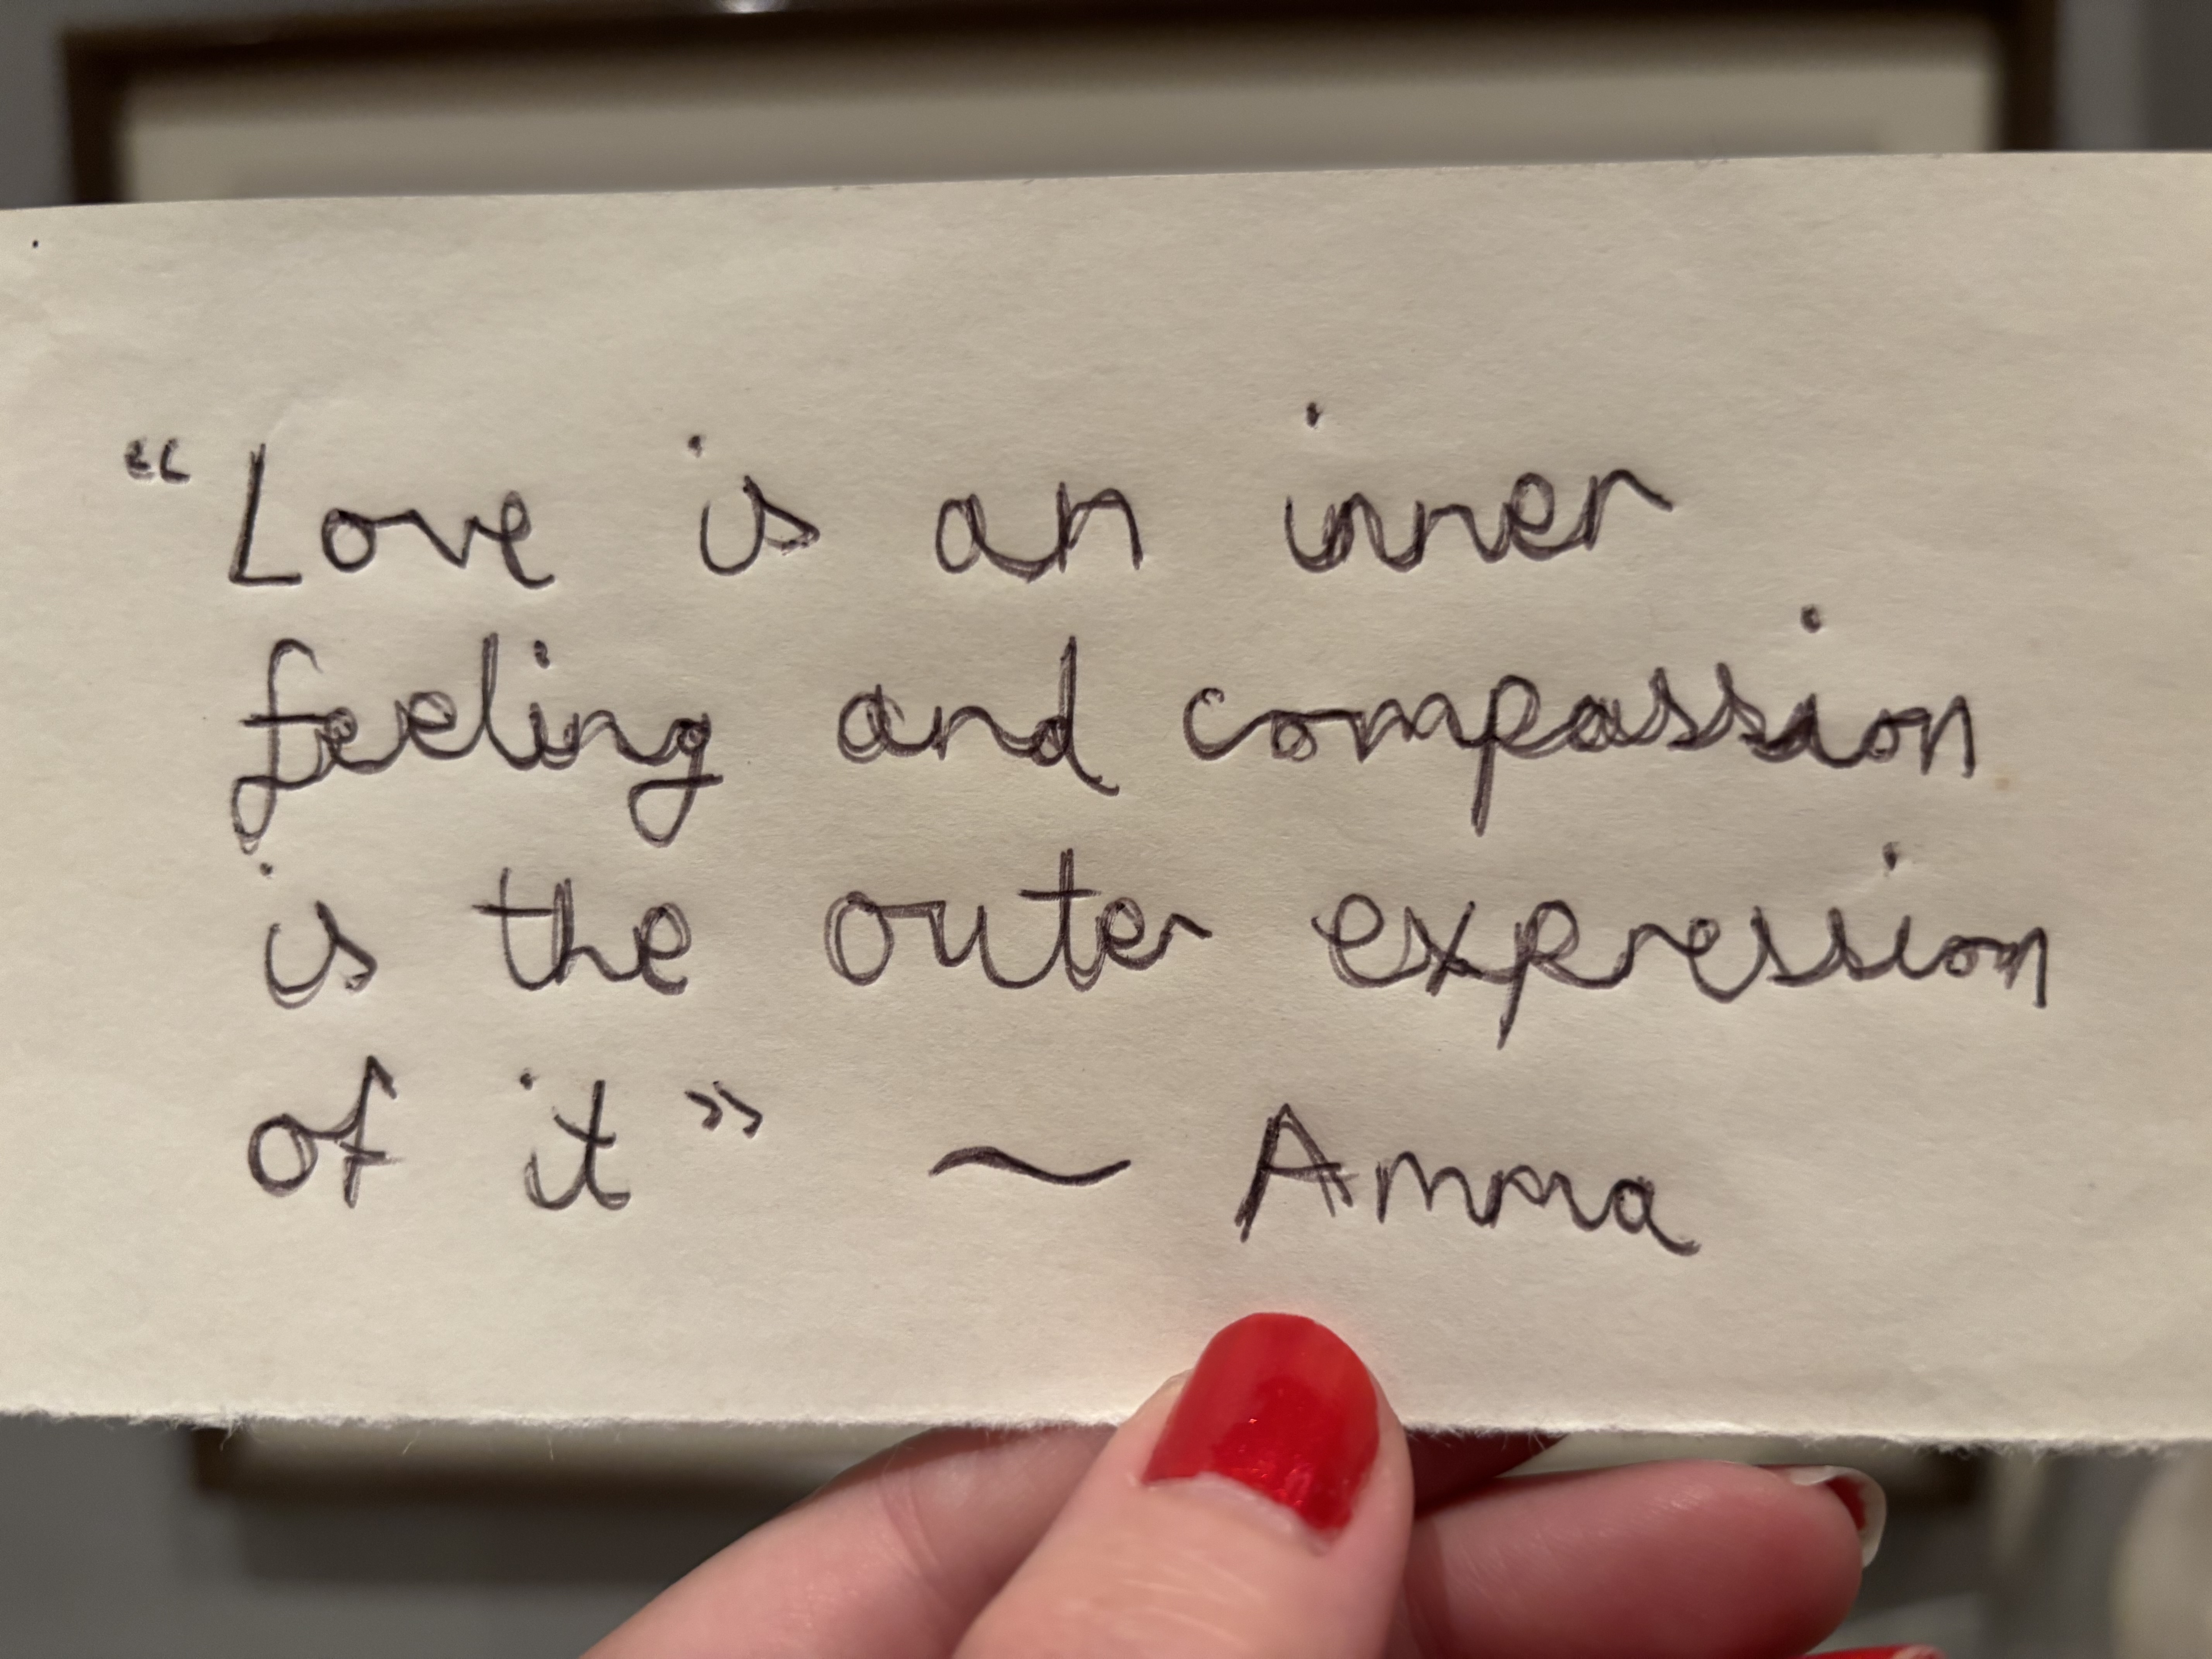 “Love is an inner
feeling and compassion
is the outer expression
of it” ~ Amma